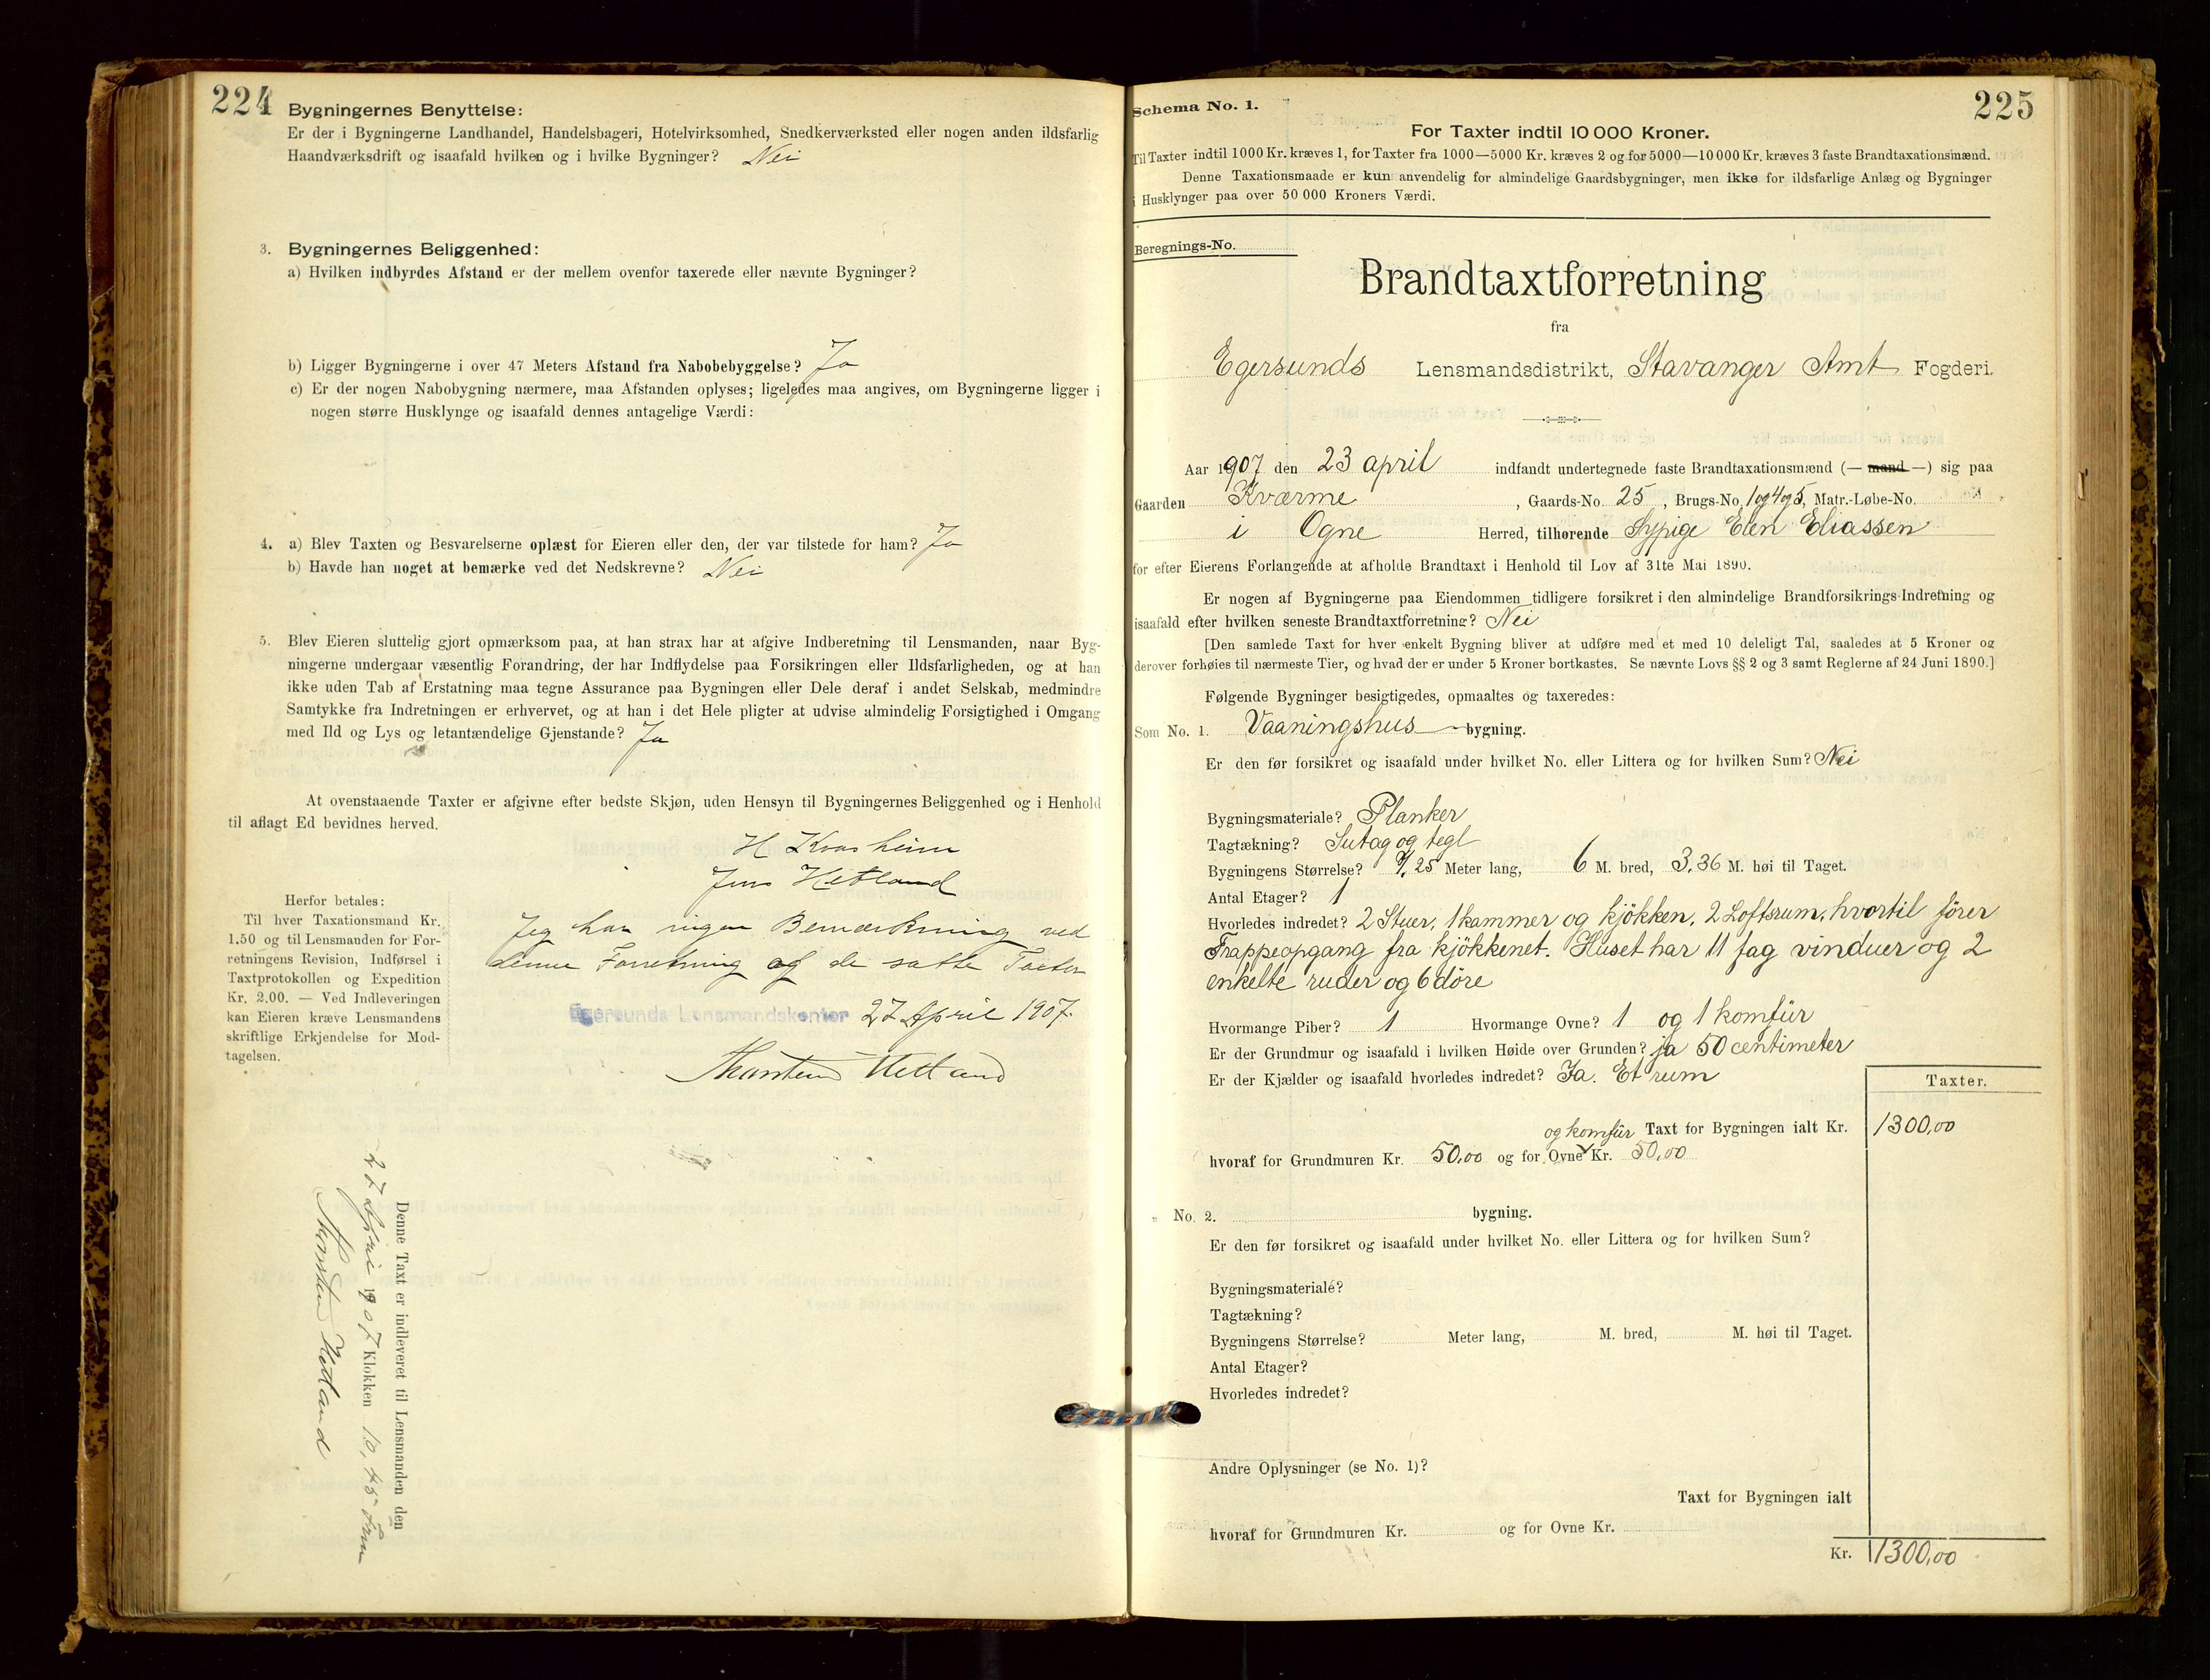 224
Bygningernes Benyttelse:
Er der i Bygningerne Landhandel, Handelsbageri, Hotelvirksomhed, Snedkerværksted eller nogen anden ildsfarlig
Haandværksdrift og isaafald hvilken og i hvilke Bygninger? Nei
3. Bygningernes Beliggenhed:
a) Hvilken indbyrdes Afstand er der mellem ovenfor taxerede eller nævnte Bygninger?
b) Ligger Bygningerne i over 47 Meters Afstand fra Nabobebyggelse? Ja
c) Er der nogen Nabobygning nærmere, maa Afstanden oplyses; ligeledes maa angives, om Bygningerne ligger i
nogen større Husklynge og isaafald dennes antagelige Værdi:
4. a) Blev Taxten og Besvarelserne oplæst for Eieren eller den, der var tilstede for ham? Ja
b) Havde han noget at bemærke ved det Nedskrevne? Nei
5. Blev Eieren sluttelig gjort opmærksom paa, at han strax har at afgive Indberetning til Lensmanden, naar Byg-
ningerne undergaar væsentlig Forandring, der har Indflydelse paa Forsikringen eller Ildsfarligheden, og at han
ikke uden Tab af Erstatning maa tegne Assurance paa Bygningen eller Dele deraf i andet Selskab, medmindre
Samtykke fra Indretningen er erhvervet, og at han i det Hele pligter at udvise almindelig Forsigtighed i Omgang
med Ild og Lys og letantændelige Gjenstande? Ja
At ovenstaaende Taxter er afgivne efter bedste Skjøn, uden Hensyn til Bygningernes Beliggenhed og i Henhold
til aflagt Ed bevidnes herved.
H Kvasheim
Jens Hetland
Herfor betales:
Til hver Taxationsmand Kr.
1.50 og til Lensmanden for For-
retningens Revision, Indførsel i
Taxtprotokollen og Expedition
Kr. 2.00. — Ved Indleveringen
kan Eieren kræve Lensmandens
skriftlige Erkjendelse for Mod-
tagelsen.
Jeg har ingen Bemærkning ved
denne Forretning og de satte Taxter
Egersunds Lensmandskontor 27 April 1907.
Thorsten Hetland
Denne Taxt er indleveret til Lensmanden den
27 April 1907 Klokken 10,45 Fm
Thorsten Hetland
225
Schema No. 1.
For Taxter indtil 10 000 Kroner.
Til Taxter indtil 1000 Kr. kræves 1, for Taxter fra 1000—5000 Kr. kræves 2 og for 5000—10 000 Kr. kræves 3 faste Brandtaxationsmænd.
Denne Taxationsmaade er kun anvendelig for almindelige Gaardsbygninger, men ikke for ildsfarlige Anlæg og Bygninger
i Husklynger paa over 50 000 Kroners Værdi.
Beregnings-No.
Brandtaxtforretning
fra
Egersunds Lensmandsdistrikt, Stavanger Amt Fogderi.
Aar 1907 den 23 april indfandt undertegnede faste Brandtaxationsmænd (— mand —) sig paa
Gaarden Kværme, Gaards-No. 25, Brugs-No. 1 og 4 og 5, Matr.-Løbe-No.
i Ogne Herred, tilhørende Sypige Elen Eliassen
for efter Eierens Forlangende at afholde Brandtaxt i Henhold til Lov af 31te Mai 1890.
Er nogen af Bygningerne paa Eiendommen tidligere forsikret i den almindelige Brandforsikrings-Indretning og
isaafald efter hvilken seneste Brandtaxtforretning? Nei
[Den samlede Taxt for hver enkelt Bygning bliver at udføre med et med 10 deleligt Tal, saaledes at 5 Kroner og
derover forhøies til nærmeste Tier, og hvad der er under 5 Kroner bortkastes. Se nævnte Lovs §§ 2 og 3 samt Reglerne af 24 Juni 1890.]
Følgende Bygninger besigtigedes, opmaaltes og taxeredes:
Som No. 1. Vaaningshus bygning.
Er den før forsikret og isaafald under hvilket No. eller Littera og for hvilken Sum? Nei
Bygningsmateriale? Planker
Tagtækning? Sutag og tegl
Bygningens Størrelse? 9,25 Meter lang, 6 M. bred, 3,36 M. høi til Taget.
Antal Etager? 1
Hvorledes indredet? 2 Stuer, 1 kammer og kjökken, 2 Loftsrum, hvortil förer
Trappeopgang fra kjökkenet. Huset har 11 fag vinduer og 2
enkelte ruder og 6 döre
Hvormange Piber? 1 Hvormange Ovne? 1 og 1 komfür
Er der Grundmur og isaafald i hvilken Høide over Grunden? ja 50 centimeter
Er der Kjælder og isaafald hvorledes indredet? Ja. Et rum
Taxter.
og komfür Taxt for Bygningen ialt Kr. 1300,00
hvoraf for Grundmuren Kr. 50,00 og for Ovne Kr. 50,00
" No. 2. bygning.
Er den før forsikret og isaafald under hvilket No. eller Littera og for hvilken Sum?
Bygningsmateriale?
Tagtækning?
Bygningens Størrelse? Meter lang, M. bred, M. høi til Taget.
Antal Etager?
Hvorledes indredet?
Andre Oplysninger (se No. 1)?
Taxt for Bygningen ialt
hvoraf for Grundmuren Kr. og for Ovne Kr.
Kr. 1300,00